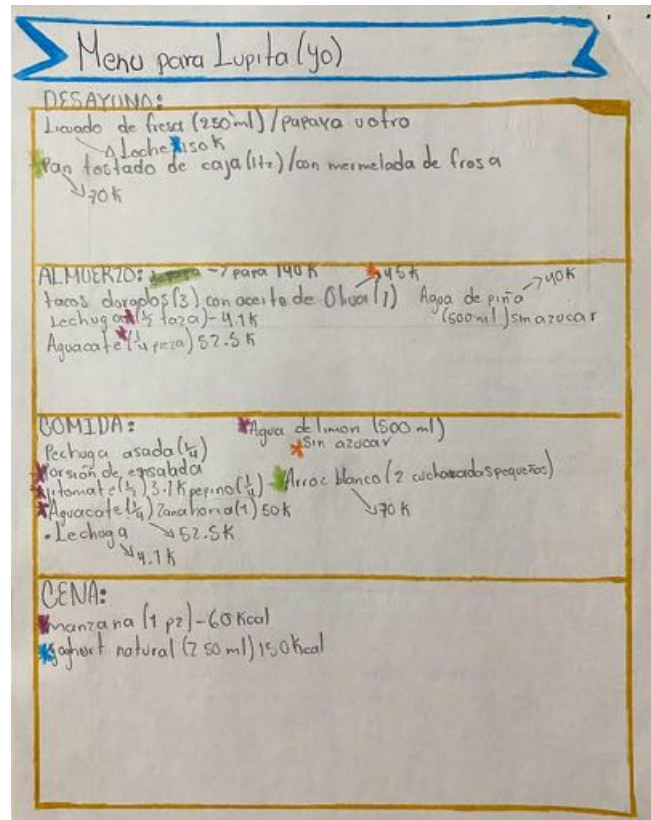 Menu para Lupita (yo)
DESAYUNO:
Licuado de fresa (250 ml) / papaya u otro
Leche 150 K
Pan tostado de caja (1tz) / con mermelada de fresa
70 K
ALMUERZO: -> papa 140 K 45 K
tacos dorados (3) con aceite de Oliva (1) Agua de piña 40 K
Lechuga (1/2 taza) - 4.1 K (500 ml) sin azucar
Aguacate (1/4 pieza) 52.5 K
COMIDA: Agua de limon (500 ml)
Pechuga asada (1/4) Sin azucar
Porsión de ensalada
Jitomate (1/2) 3.1 K pepino (1/4) Arroz blanco (2 cucharadas pequeñas)
Aguacate (1/4) Zanahoria (1) 50 K 70 K
• Lechuga 52.5 K
4.1 K
CENA:
manzana (1 pz) - 60 Kcal
yoghurt natural (250 ml) 150 Kcal